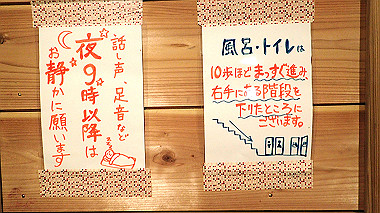 話し声、足音など
夜9時以降は
お静かに願います
風呂・トイレは
10歩ほどまっすぐ進み
右手にある階段を
下りたところに
ございます。